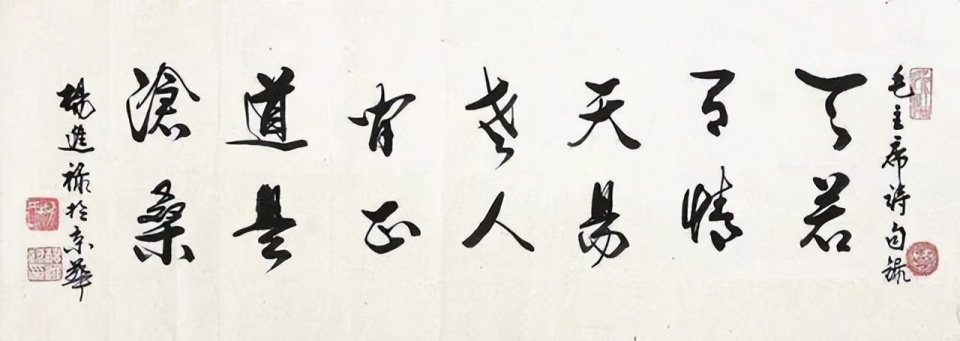 毛主席詩句錄
天若
有情
天易
老人
間正
道是
滄桑
楊進祿於京華